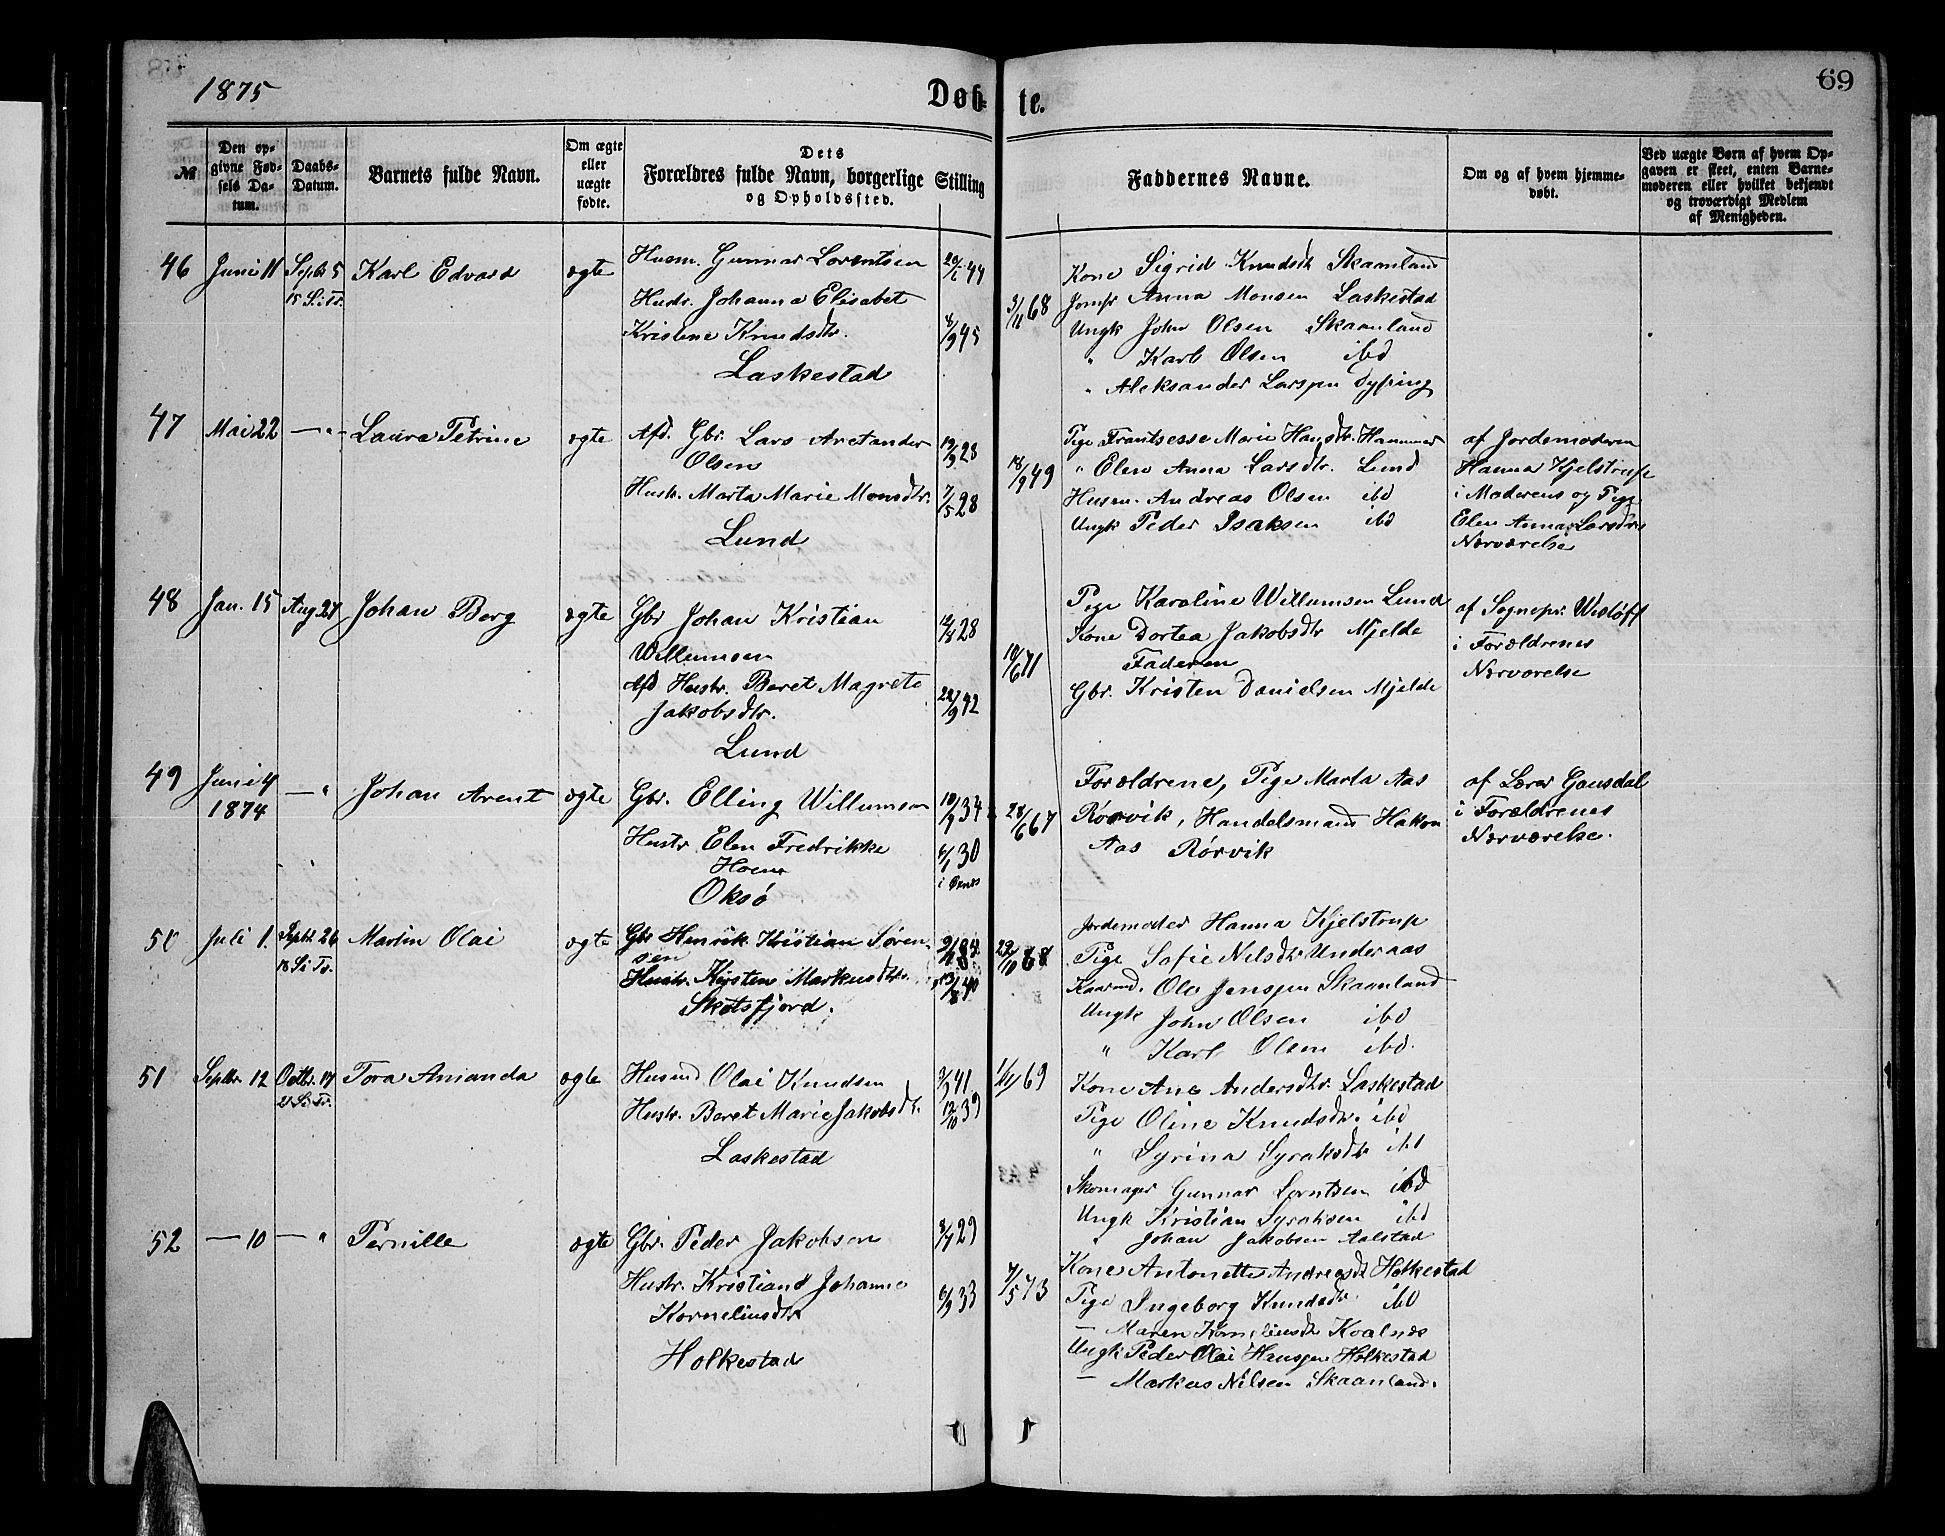 1875
Døb-
te.
69
№
Den op-
givne Fød-
sels Da-
tum.
Daabs-
Datum.
Barnets fulde Navn.
Om ægte
eller
uægte
fødte.
Dets
Forældres fulde Navn, borgerlige Stilling
og Opholdssted.
Faddernes Navne.
Om og af hvem hjemme-
døbt.
Ved uægte Børn af hvem Op-
gaven er skeet, enten Barne-
moderen eller hvilket bekjendt
og troværdigt Medlem
af Menigheden.
46 Juni 11 Septr 5 Karl Edvard ægte Husm. Gunnar Lorentsen
15 S. i Tr.
Hustr. Johanna Elisabet
Kristine Knudsdtr. 8/9 45
Laskestad
3/11 68
Kone Sigrid Knudsdtr Skaanland
Jomfr Anna Monsen Laskestad
Ungk John Olsen Skaanland
" Karl Olsen ibd
" Aleksander Larssen Dyping
47 Mai 22 — " - Laura Petrine ægte Afd. Gbr. Lars Arctander
Olsen 19/9 28
Hustr. Marta Marie Monsdtr. 7/5 28
Lund
18/9 49
Pige Frantsesse Marie Hansdtr. Hammer
" Elen Anna Larsdtr. Lund
Husm. Andreas Olsen ibd
Ungk Peder Isaksen ibd
af Jordemoderen
Hanna Kjelstrup
i Moderens og Pige
Elen Anna Larsdtrs
Nærværelse
48 Jan. 15 Aug 27 Johan Berg ægte Gbr Johan Kristian
Willumsen 28
Afd Hustr. Beret Magrete
Jakobsdtr. 22/9 42
Lund
10/6 71
Pige Karoline Willumsen Lund
Kone Dortea Jakobsdtr Mjelde
Faderen
Gbr. Kristen Danielsen Mjelde
af Sognepr. Wisløff
i Forældrenes
Nærværelse
49 Juni 4 — " Johan Arent ægte Gbr. Elling Willumsen 34
1874
Hustr Elen Fredrikke 6/1 30
Oksø
28/6 67
Forældrene, Pige Marta Aas
Rørvik, Handelsmand Hakon
Aas Rørvik
af Lærer Gausdal
i Forældrenes
Nærværelse.
50 Juli 1. Septr. 26 Martin Olai ægte Gbr Henrik Kristian Søren-
18 S. i Tr.
sen
Hustr. Kirsten Markusdtr. 13/8 40
Skotsfjord.
23/10 68
Jordemoder Hanna Kjelstrup
Pige Sofie Nilsdtr Underaas
Kaarmd. Ole Jenssen Skaanland
Ungk John Olsen ibd
" Karl Olsen ibd.
51 Septbr. 12 Octbr. 17 Tora Amanda ægte Husmd Olai Knudsen 41
21 S. i Tr.
Hustr. Beret Marie Jakobsdtr. 12/10 39
Laskestad
69
Kone Ane Andersdtr. Laskestad
Pige Oline Knudsdtr. ibd
" Syrina Syraksdtr ibd
Skomager Gunnar Lorntsen ibd
Ungk Kristian Syraksen ibd
" Johan Jakobsen Aalstad
52 — 10 — " Pernille ægte Gbr. Peder Jakobsen 29
Hustr. Kristiane Johanne
Korneliusdtr 6/9 33
Holkestad
7/5 73
Kone Antonette Andreasdtr Holkestad
Pige Ingeborg Knudsdtr. ibd
— Maren Korneliusdtr Koalnes
Ungk Peder Olai Hanssen Holkestad
— Markus Nilsen Skaanland.